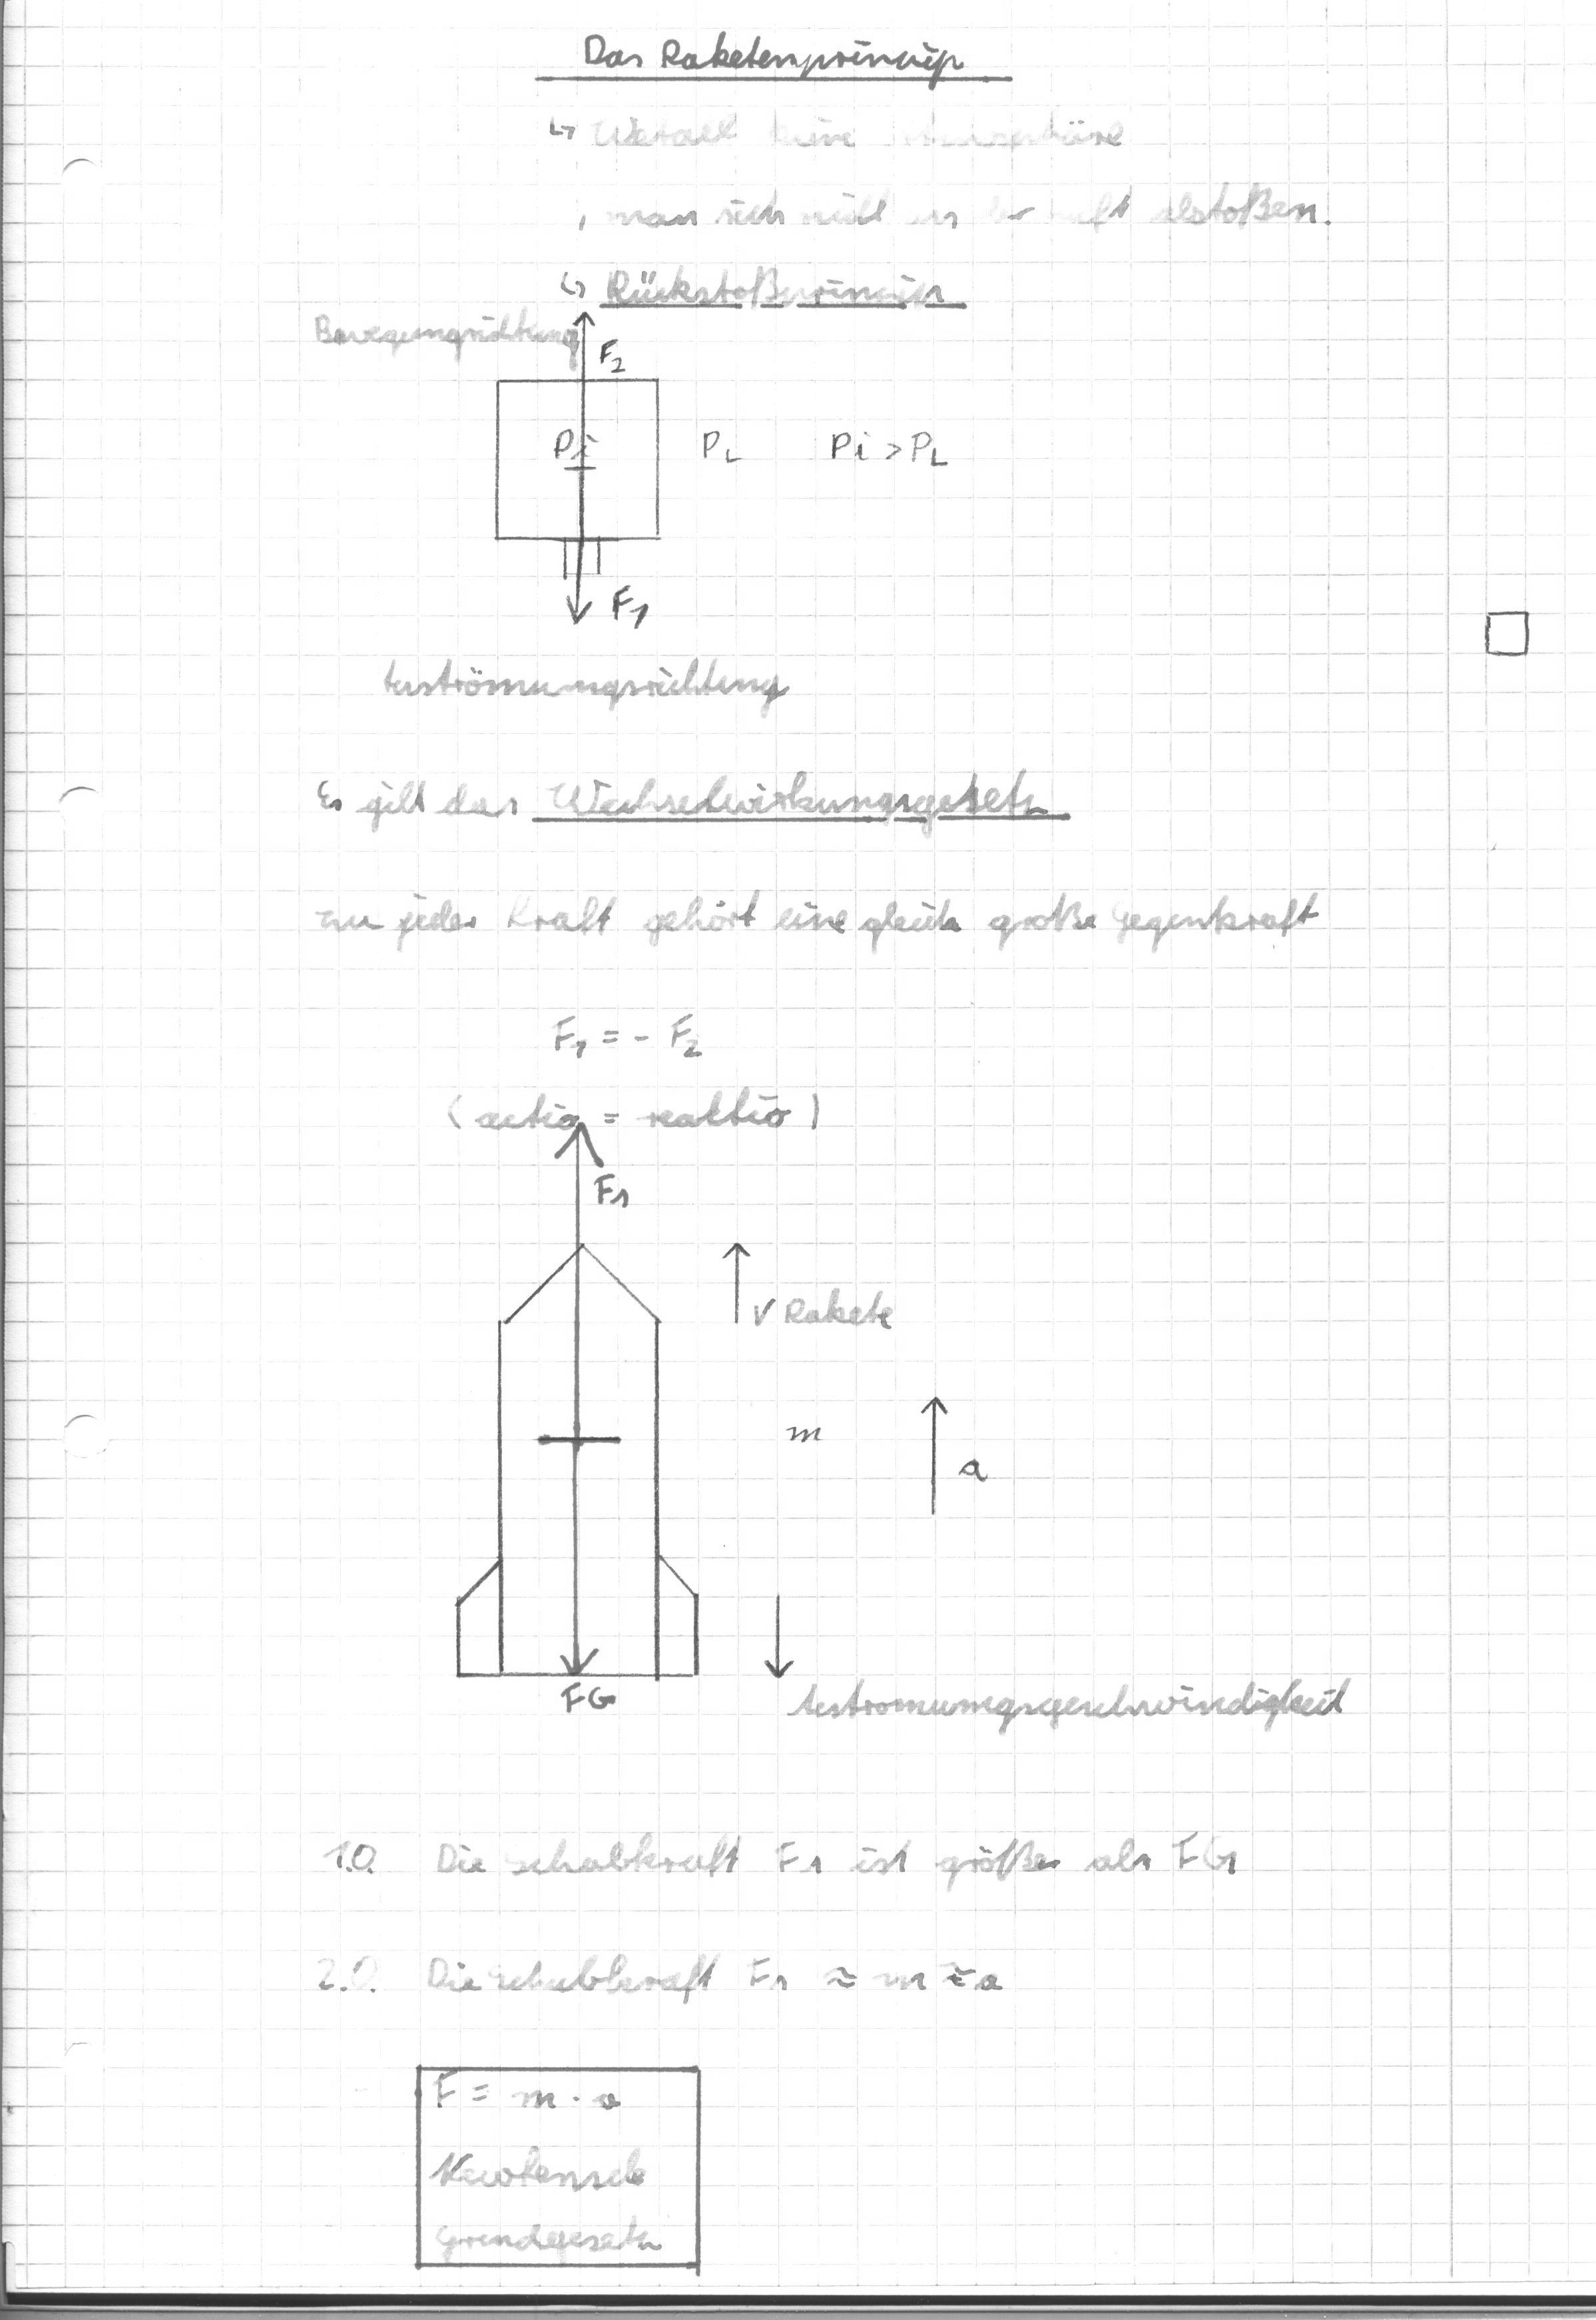 Das Raketenprinzip
↳ Weltall keine
man sich nicht an der Luft abstoßen.
↳ Rückstoßprinzip
Bewegungsrichtung
F2
Pi PL Pi > PL
F1
Ausströmungsrichtung
Es gilt das Wechselwirkungsgesetz
zu jeder Kraft gehört eine gleich große Gegenkraft
F1 = - F2
(actio = reaktio)
F1
V Rakete
m
a
FG
Austromungsgeschwindigkeit
1.0. Die Schubkraft F1 ist größer als FG
2.0. Die Schubkraft F1 ≈ m ≈ a
F = m · a
Newtensche
Grundgesetz